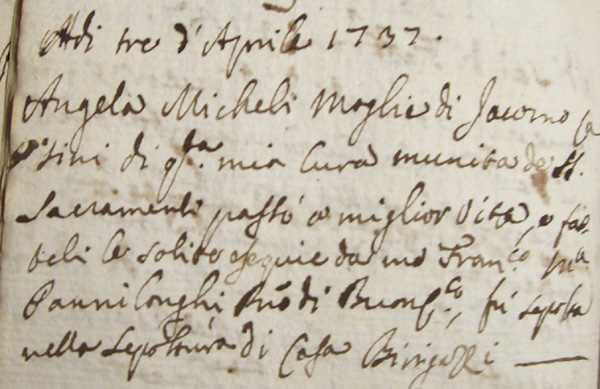 Adi tre d'Aprile 1737.
Angela Micheli Moglie di Jacomo
sini di q.ta mia Cura munita de SS.
Sacramenti passò a miglior Vita, e fat-
teli le solite esequie da me Fran.co M.a
Pannilonghi di, fù sepolta
nella Sepoltura di Casa